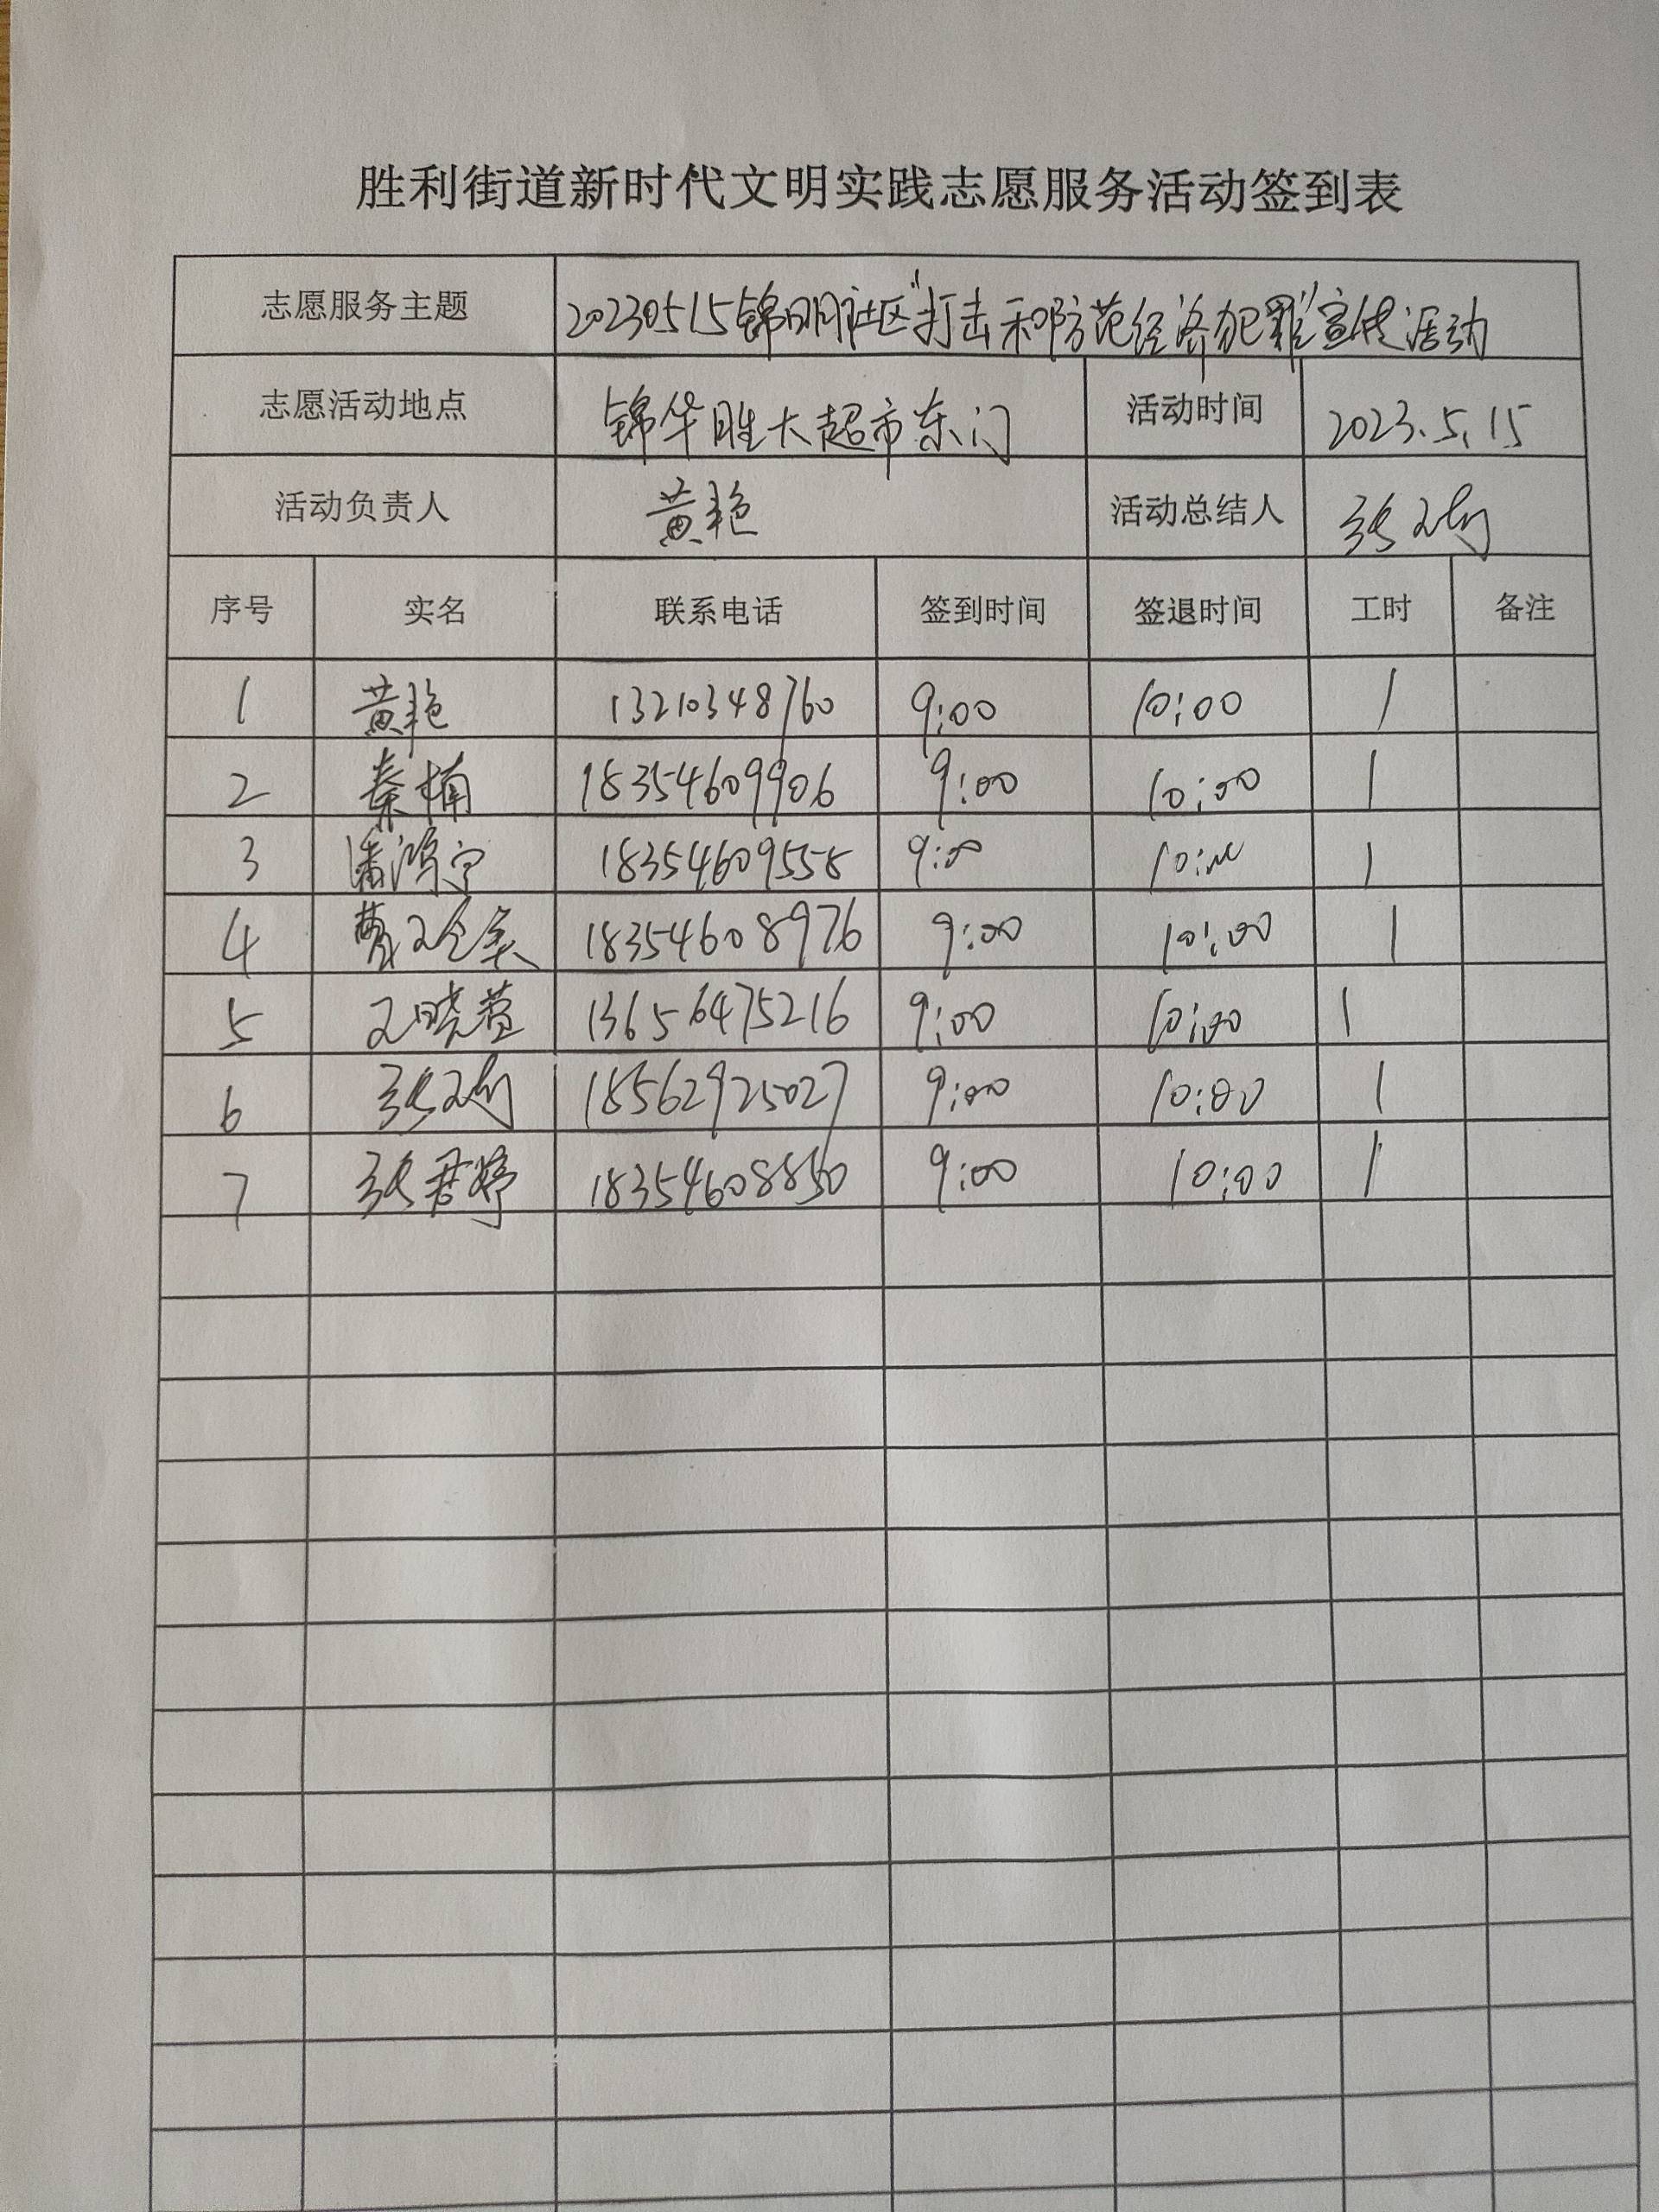 胜利街道新时代文明实践志愿服务活动签到表
志愿服务主题 20230515锦明社区"打击和防范经济犯罪"宣传活动
志愿活动地点 锦华胜大超市东门 活动时间 2023.5.15
活动负责人 黄艳 活动总结人 张
序号 实名 联系电话 签到时间 签退时间 工时 备注
1 黄艳 13210348760 9:00 10:00 1
2 秦楠 18354609906 9:00 10:00 1
3 潘鸿宁 18354609558 9:00 10:00 1
4 18354608976 9:00 10:00 1
5 晓 13656475216 9:00 10:00 1
6 张 18562925027 9:00 10:00 1
7 张君婷 18354608850 9:00 10:00 1